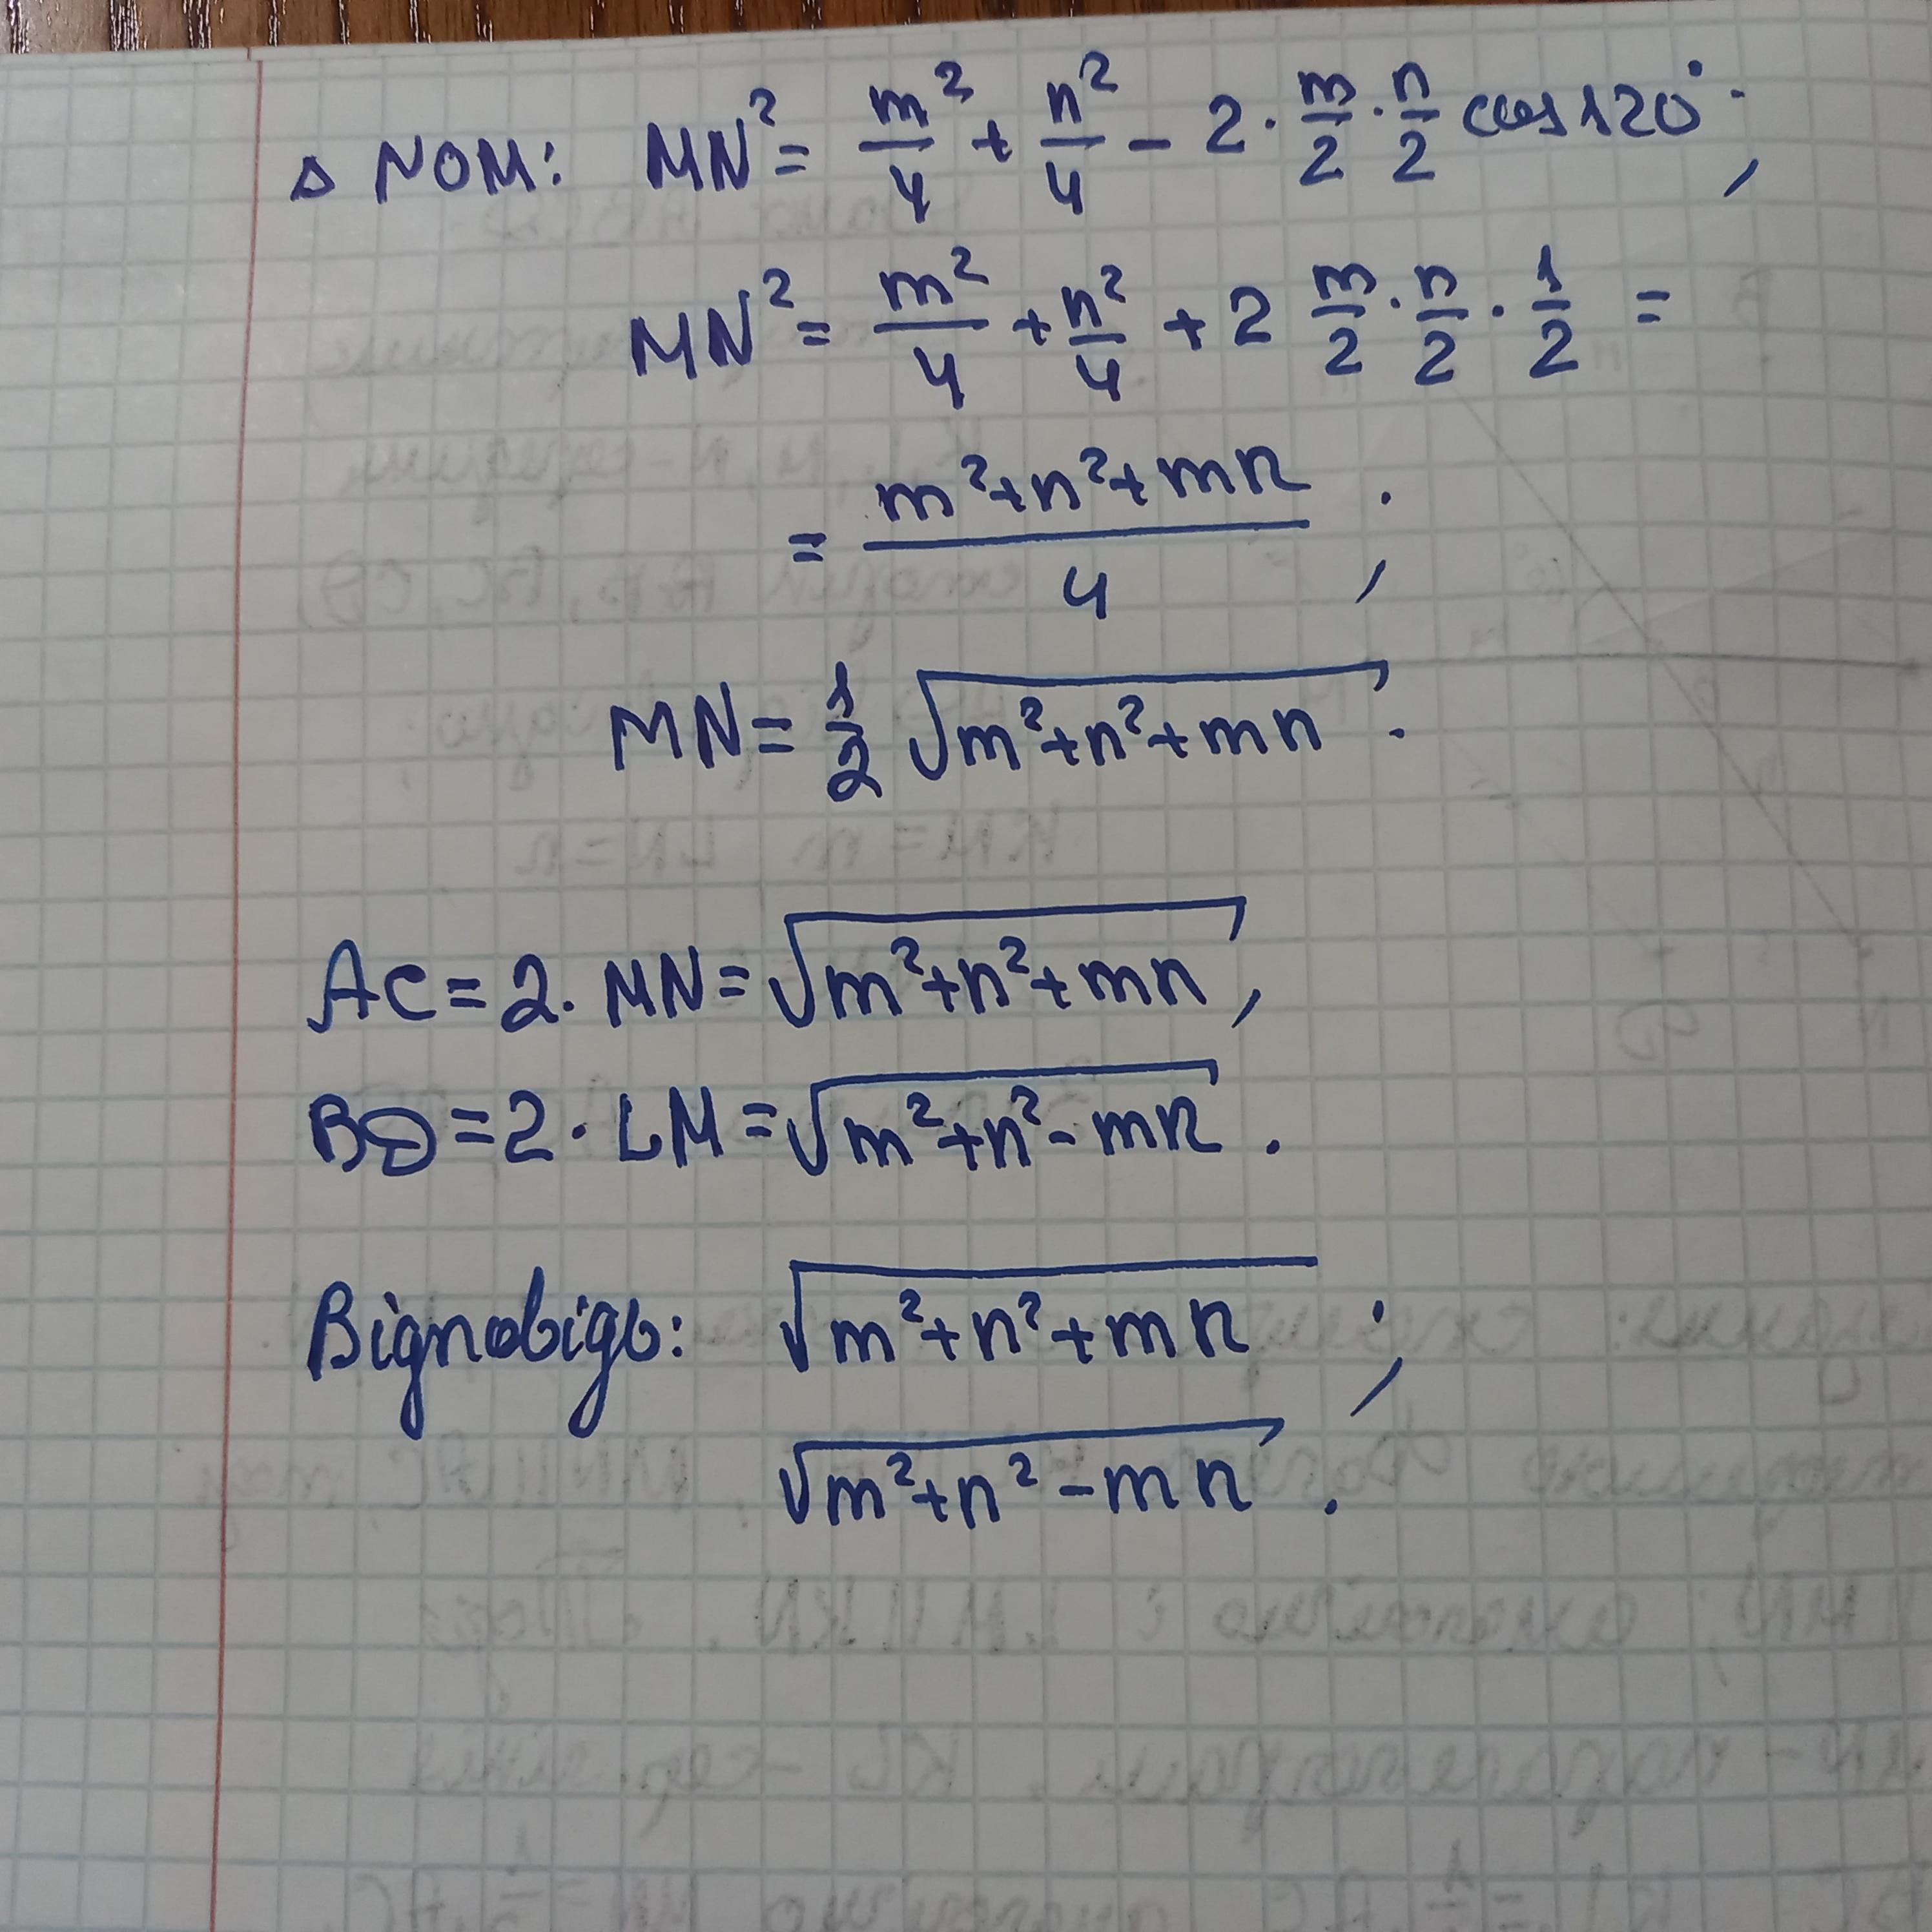 △ NOM: MN² = m²/4 + n²/4 − 2 · m/2 · n/2 cos 120°;
MN² = m²/4 + n²/4 + 2 m/2 · n/2 · 1/2 =
= (m²+n²+mn)/4 ;
MN = 1/2 √(m²+n²+mn) .
AC = 2 · MN = √(m²+n²+mn) ,
BD = 2 · LM = √(m²+n²−mn) .
Відповідь: √(m²+n²+mn) ;
√(m²+n²−mn) .